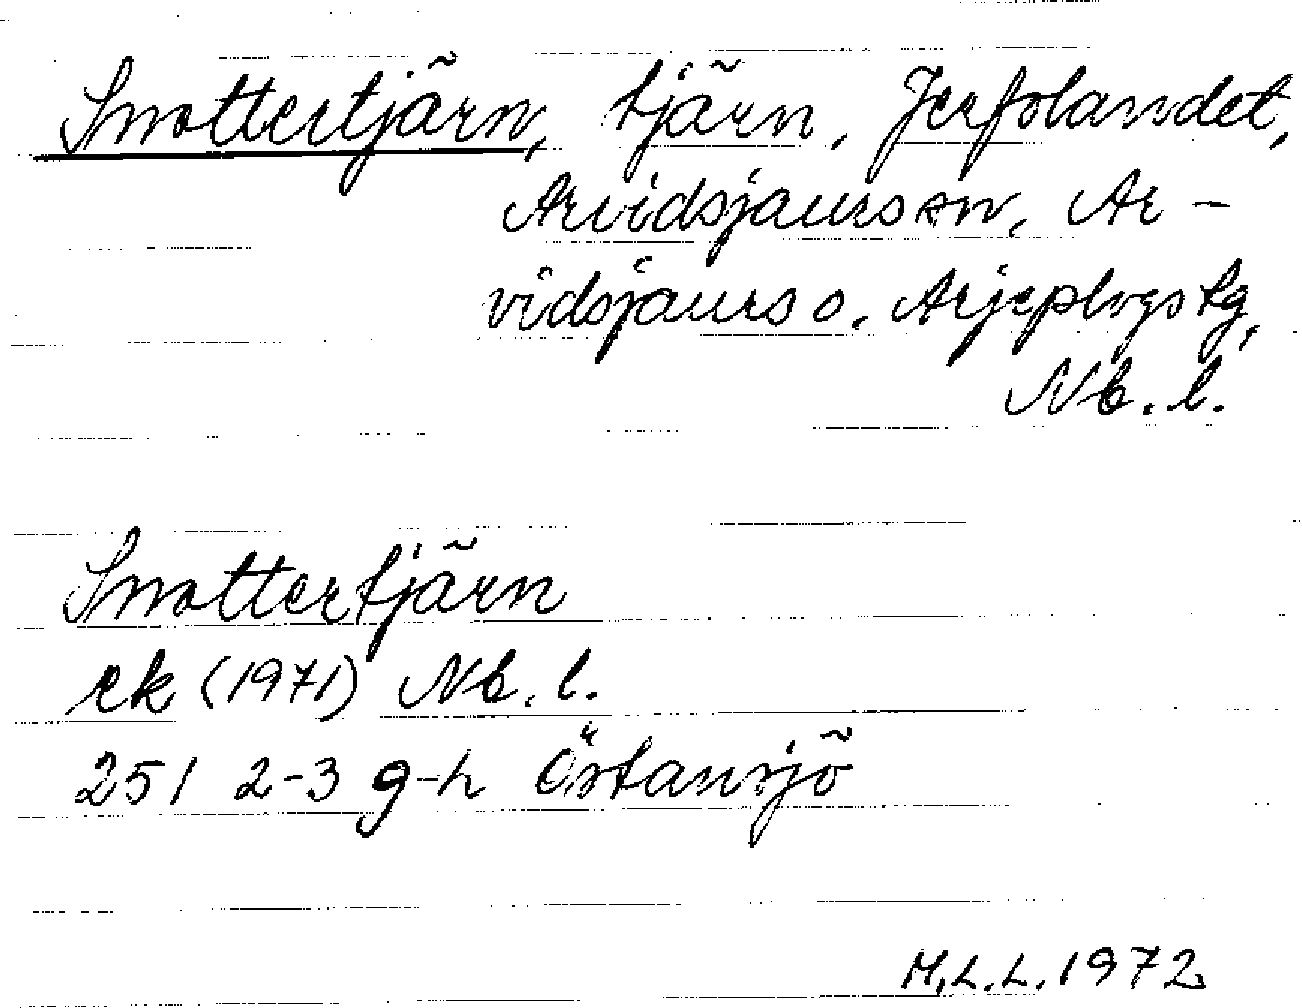 Snottertjärn, tjärn, Jerfolandet,
Arvidsjaurs sn, Ar-
vidsjaurs o. Arjeplogs tg,
Nb. l.
Snottertjärn
ek (1971) Nb. l.
251 2-3 g-h Östansjö
M.L.L. 1972